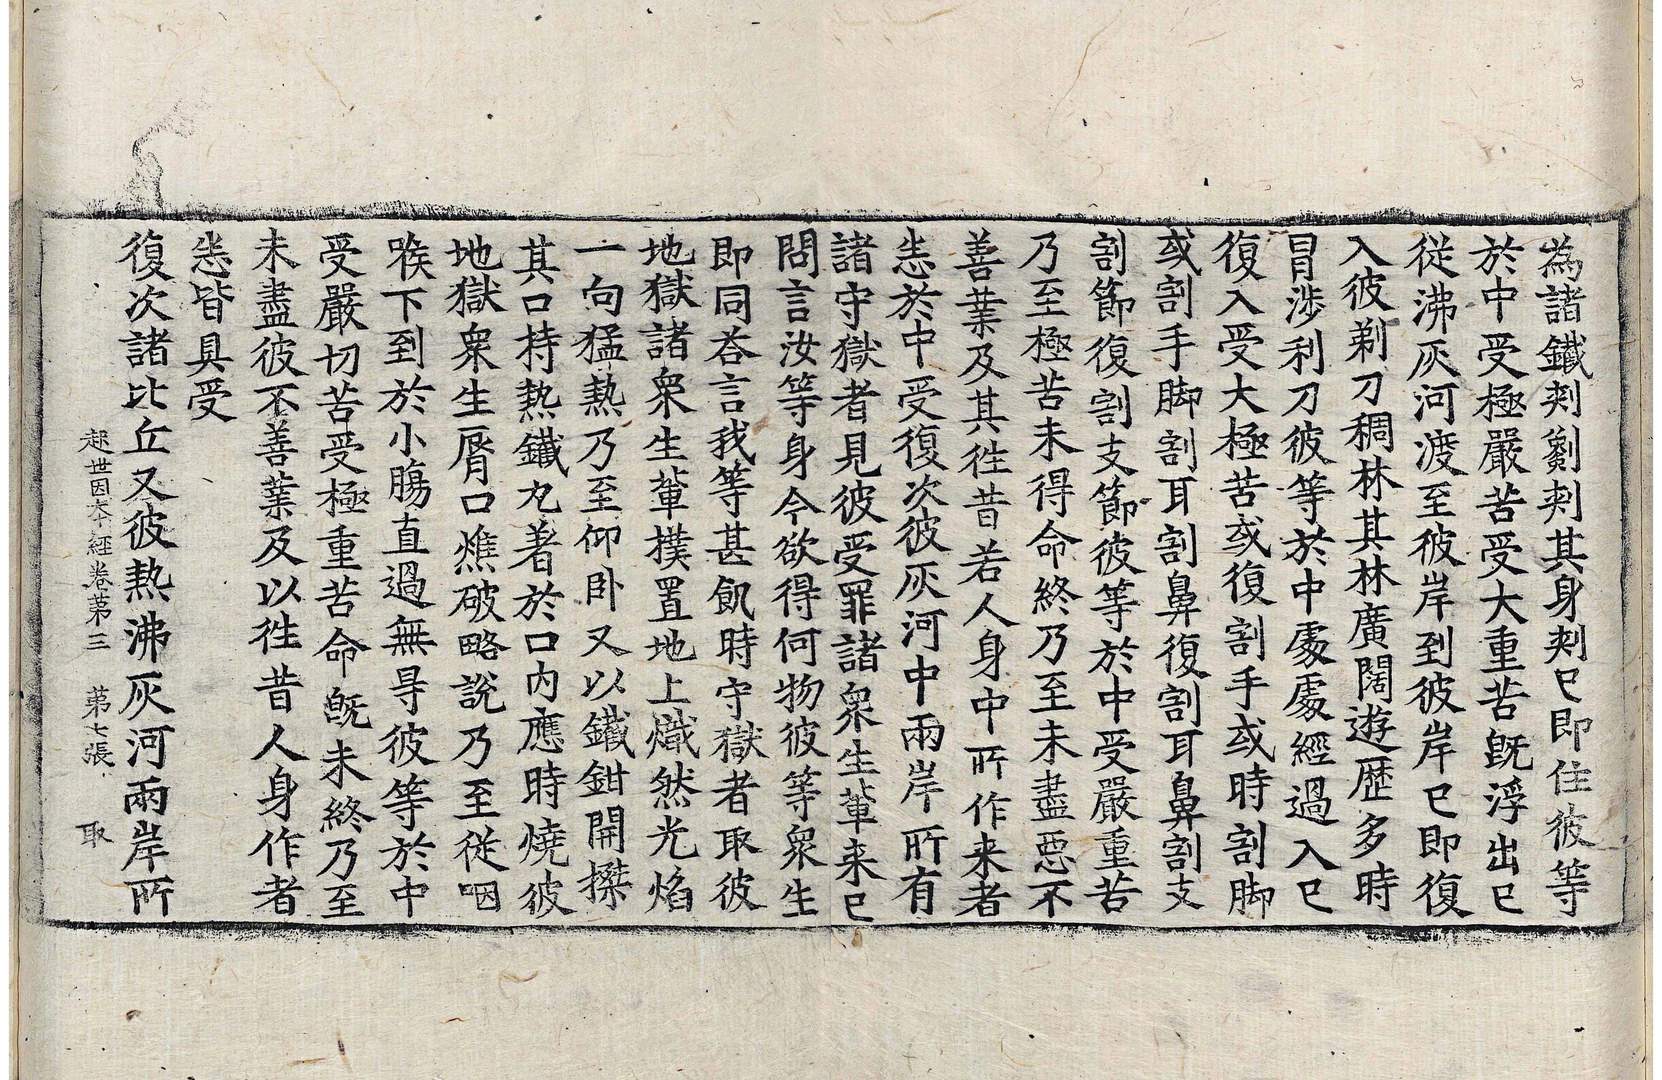 為諸鐵刾劖刾其身刾已即住彼等
於中受極嚴苦受大重苦旣浮出已
從沸灰河渡至彼岸到彼岸已即復
入彼剃刀稠林其林廣闊遊歷多時
冒涉利刀彼等於中處處經過入已
復入受大極苦或復割手或時割脚
或割手脚割耳割鼻復割耳鼻割支
割節復割支節彼等於中受嚴重苦
乃至極苦未得命終乃至未盡惡不
善業及其徃昔若人身中所作来者
悉於中受復次彼灰河中兩岸所有
諸守獄者見彼受罪諸衆生軰来已
問言汝等身今欲得何物彼等衆生
即同荅言我等甚飢時守獄者取彼
地獄諸衆生軰撲置地上熾然光焰
一向猛熱乃至仰卧又以鐵鉗開搩
其口持熱鐵丸著於口內應時燒彼
地獄衆生脣口燋破略說乃至從咽
喉下到於小膓直過無㝵彼等於中
受嚴切苦受極重苦命旣未終乃至
未盡彼不善業及以徃昔人身作者
悉皆具受
復次諸比丘又彼熱沸灰河兩岸所
起世因本經卷第三 第七張 取